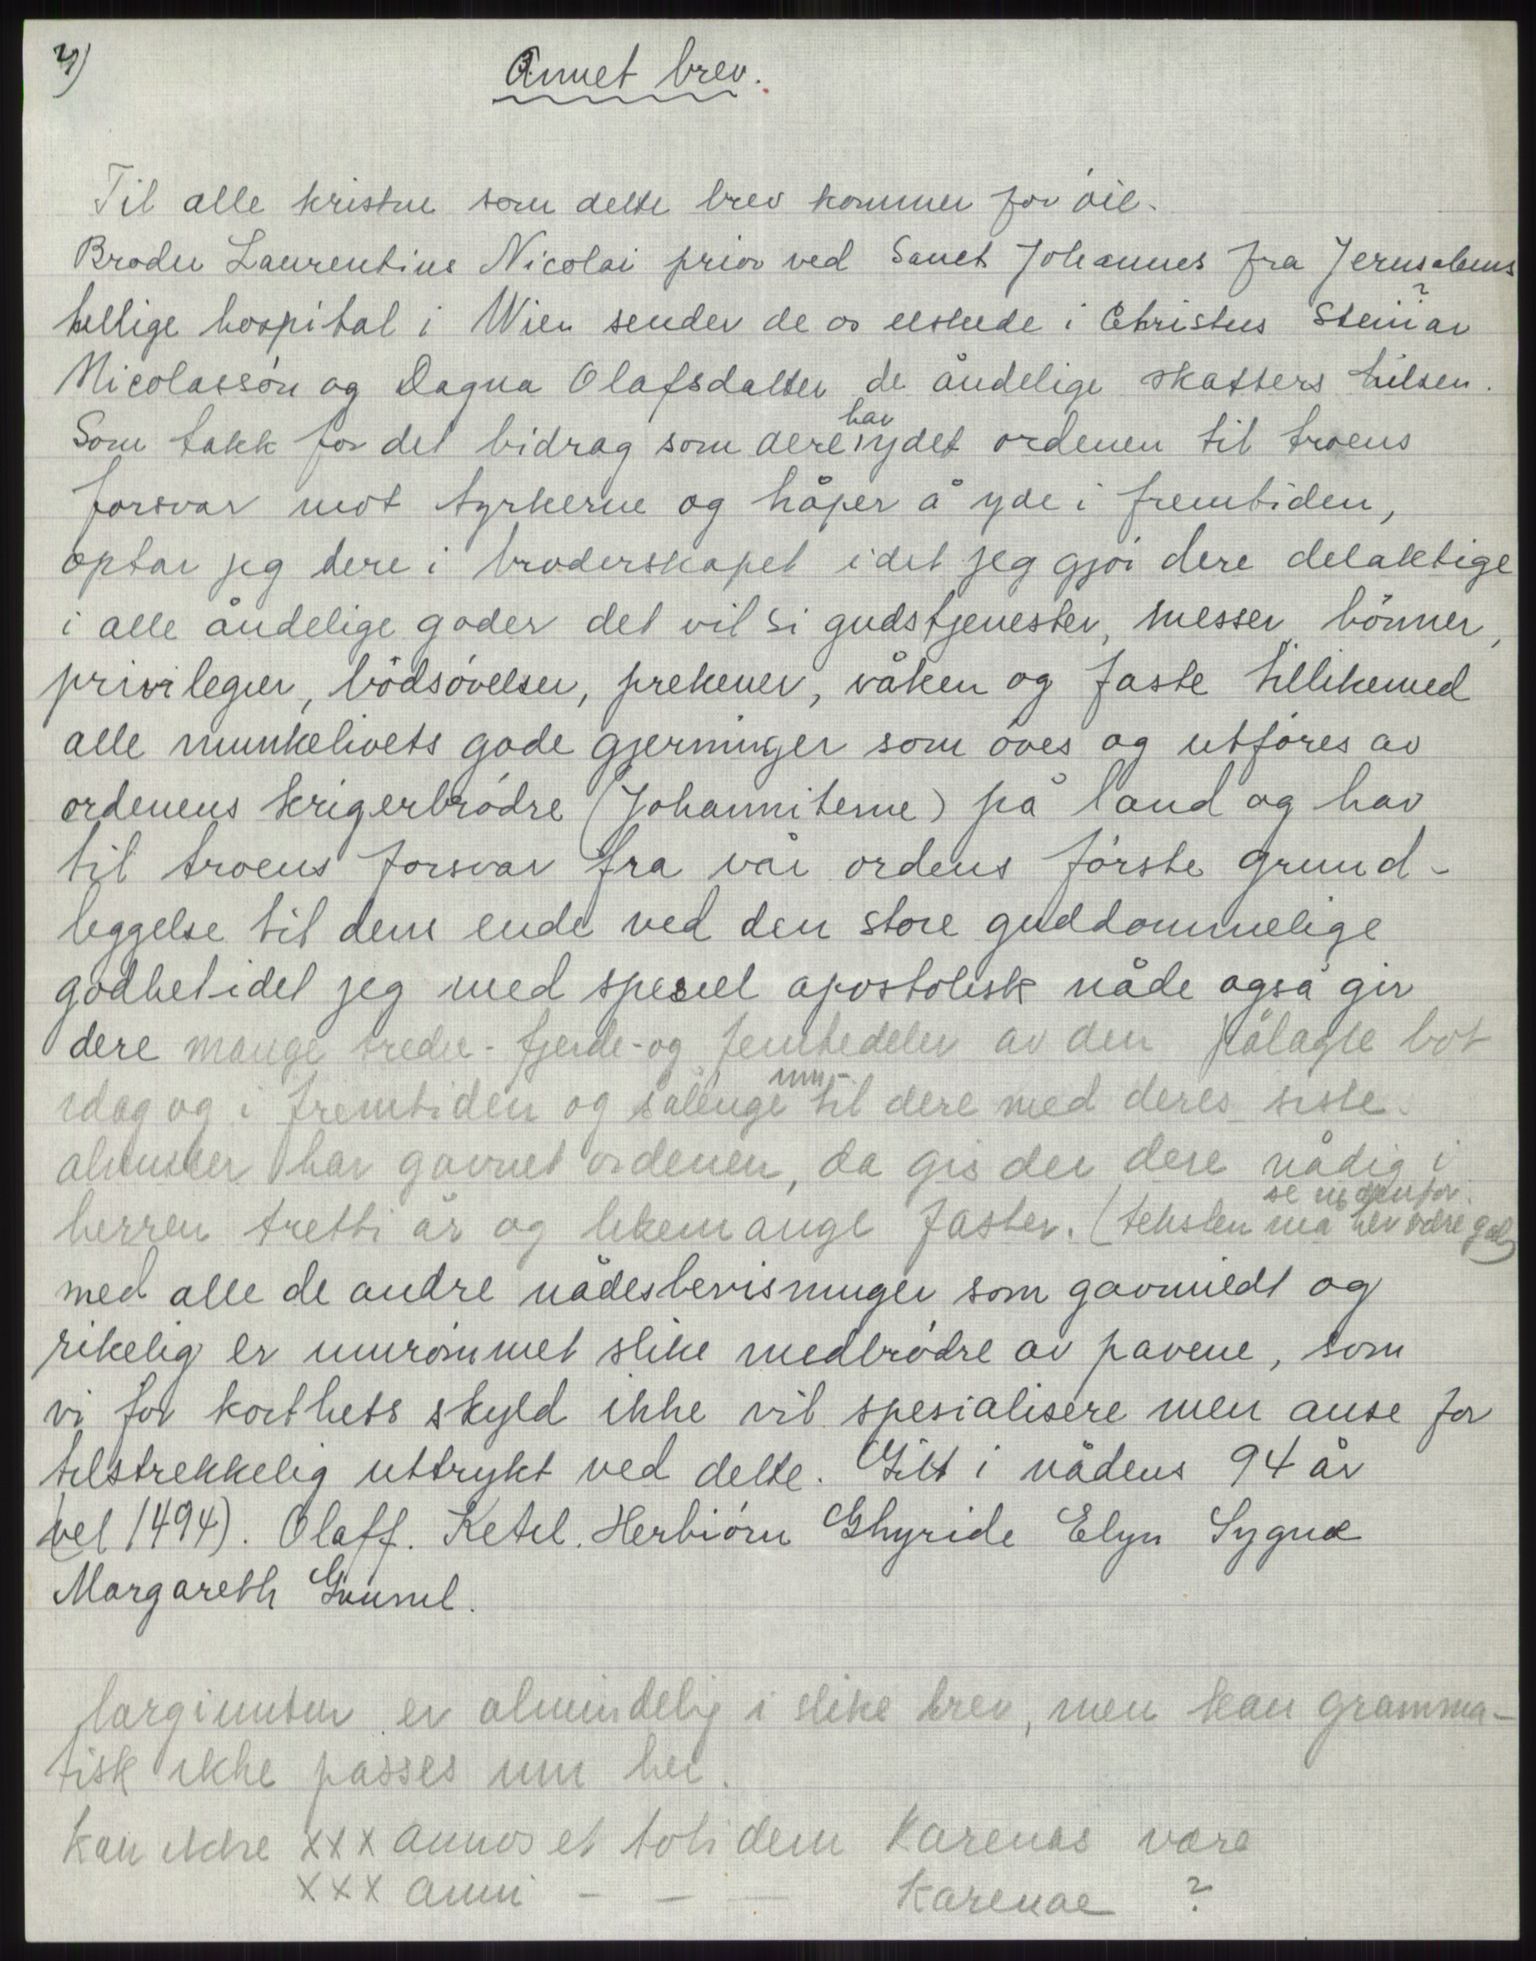 4)
Annet brev.
Til alle kristne som dette brev kommer for öie.
Broder Laurentius Nicolai prior ved Sanct Johannes fra Jerusalems
hellige hospital i Wien sender de os elskede i Christus Steinar ?
Nicolassön og Dagna Olafsdatter de åndelige skatters hilsen.
Som takk for det bidrag som dere har ydet ordenen til troens
forsvar mot tyrkerne og håper å yde i fremtiden,
optar jeg dere i broderskapet idet jeg gjör dere delaktige
i alle åndelige goder det vil si gudstjenester, messer, bönner,
privilegier, bodsövelser, prekener, våken og faste tillikemed
alle munkelivets gode gjerninger som öves og utföres av
ordenens krigerbrödre (Johanniterne) på land og hav
til troens forsvar fra vår ordens förste grund-
leggelse til dens ende ved den store guddommelige
godhet idet jeg med spesiel apostolisk nåde også gir
dere mange tredie- fjerde- og femtedeler av den pålagte bot
idag og i fremtiden og sålenge til dere med deres siste
almisser har gavnet ordenen, da gis der dere nådig i
herren tretti år og likemange faster. (teksten må her være gal,
se nedenfor.
med alle de andre nådesbevisninger som gavmildt og
rikelig er innrömmet slike medbrödre av pavene, som
vi for korthets skyld ikke vil spesialisere men anse for
tilstrekkelig uttrykt ved dette. Gitt i nådens 94 år
(vel 1494). Olaff. Ketel. Herbiörn Ghyride Elyn Sygna
Margareth Gunnel.
larginntur er almindelig i slike brev, men kan gramma-
tisk ikke passes inn her.
Kan ikke xxx annos et totidem Karenas være
xxx anni - - - Karenae ?